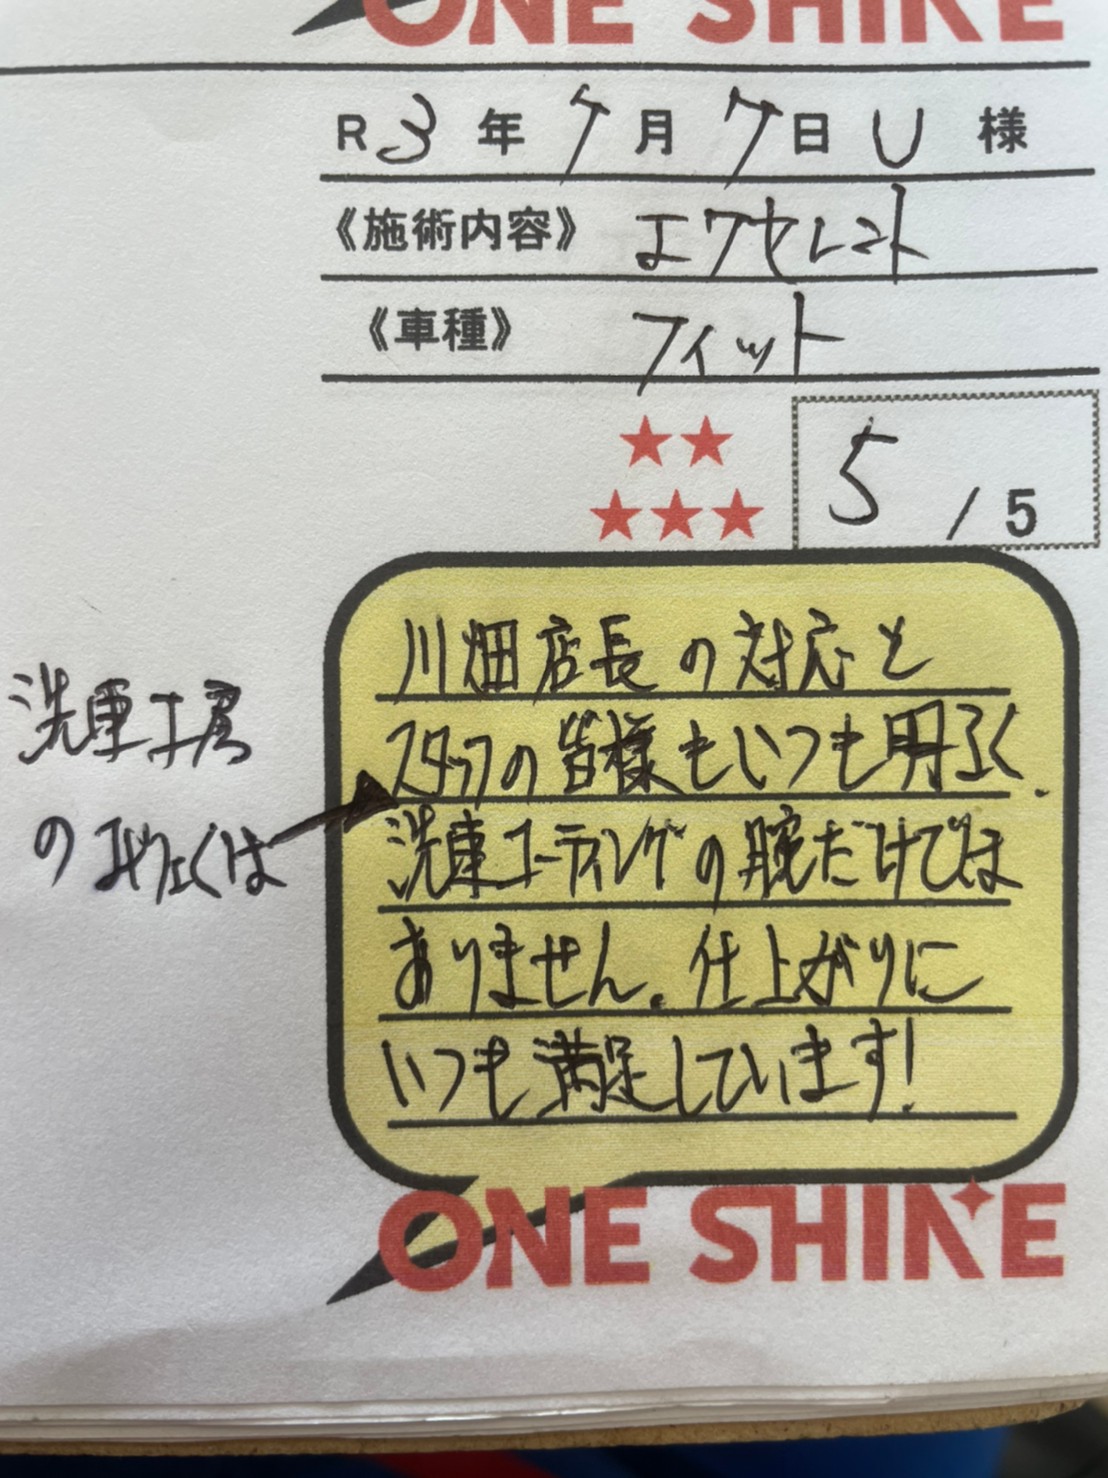 ONE SHINE
R3年7月7日U様
《施術内容》エクセレント
《車種》フィット
5/5
川畑店長の対応と
スタッフの皆様もいつも明るく、
洗車コーティングの腕だけでは
ありません。仕上がりに
いつも満足しています!
洗車工房
の
は
ONE SHINE